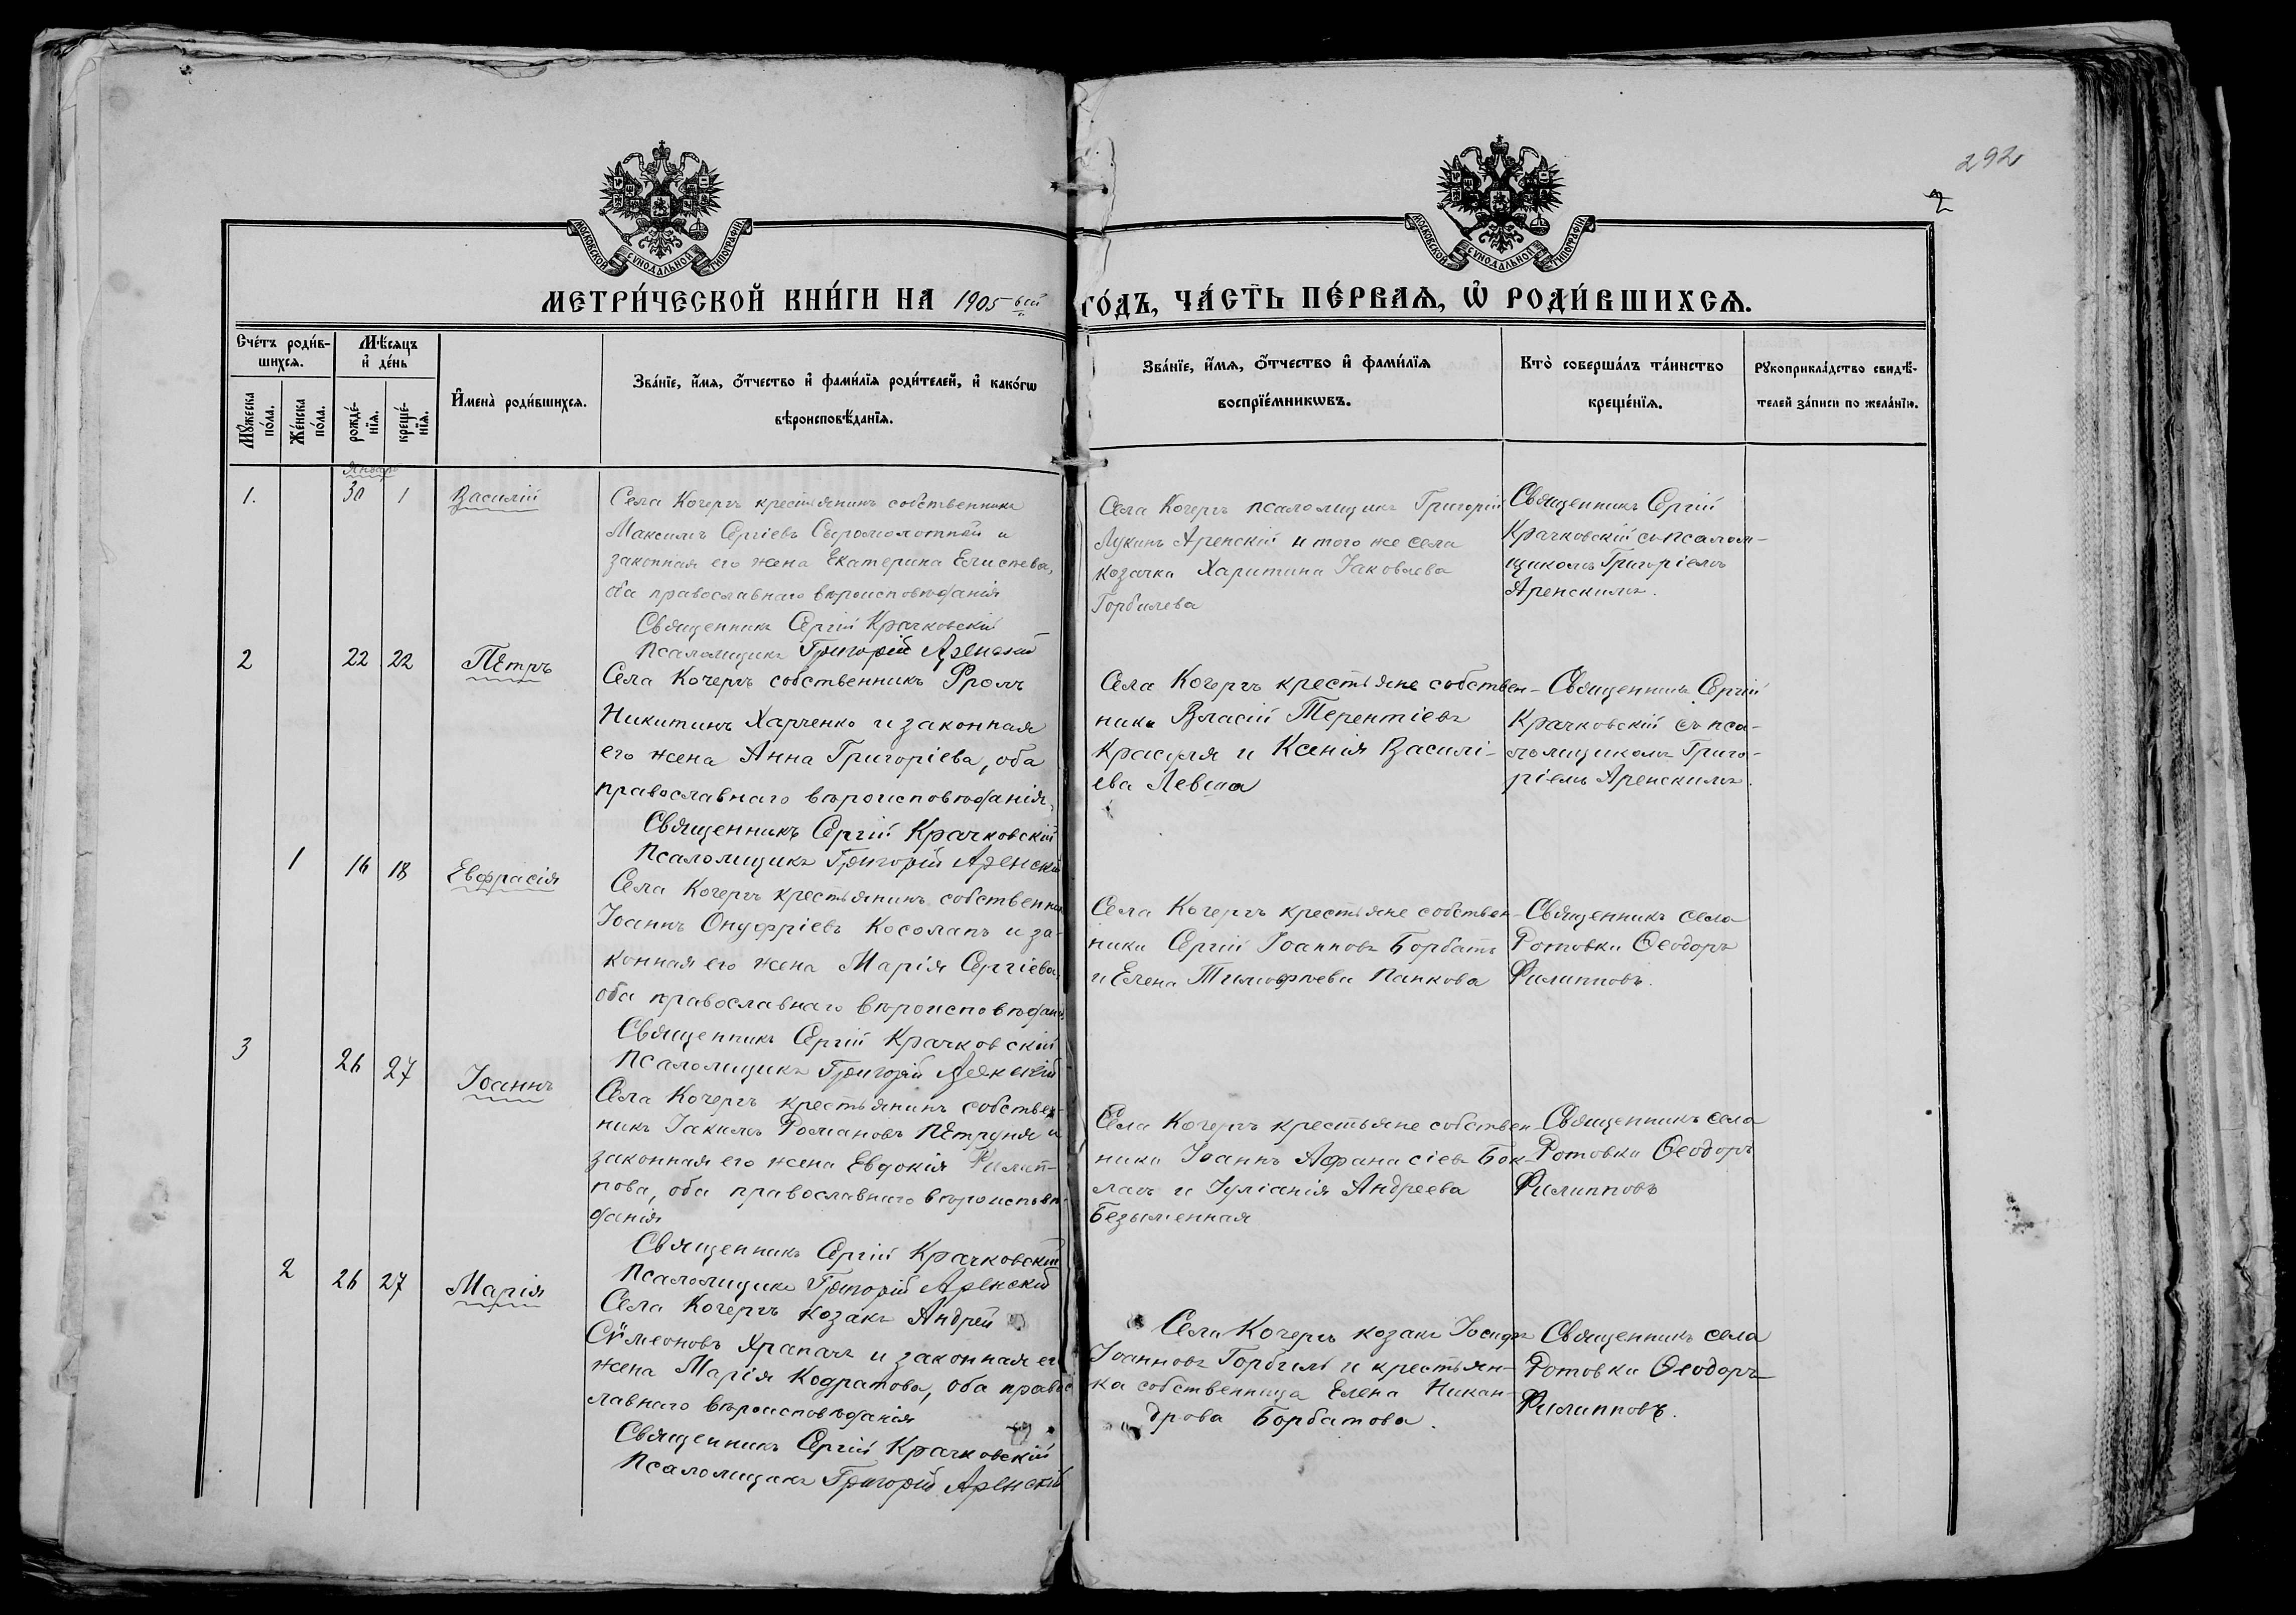 292
2
МОСКОВСКОЙ СѴНОДАЛЬНОЙ ТИПОГРАФІИ
МОСКОВСКОЙ СѴНОДАЛЬНОЙ ТИПОГРАФІИ
МЕТРИ́ЧЕСКОЙ КНИ́ГИ НА 1905-ый ГО́ДЪ, ЧА́СТЬ ПЕ́РВАЯ, Ѡ҆ РОДИ́ВШИХСЯ.
Сче́тъ роди́в-
шихся.
Мꙋжеска
по́ла.
Же́нска
по́ла.
Мѣ́сяцъ
и҆ де́нь
рожде́-
нїѧ.
креще́-
нїѧ.
И҆мена̀ роди́вшихсѧ.
Зва́нїе, и҆́мѧ, ѻ҆́тчество и҆ фами́лїѧ роди́телей, и҆ како́гѡ
вѣроисповѣ́данїѧ.
Зва́нїе, и҆́мѧ, ѻ҆́тчество и҆ фами́лїѧ
воспрїе́мникѡвъ.
Кто̀ соверша́лъ та́инство
креще́нїѧ.
Рꙋкоприкла́дство свидѣ́-
телей за́писи по жела́нїю.
Январь
1.
30
1
Василій
Села Кочергъ крестьянинъ собственникъ
Максимъ Сергіевъ Сыромолотный и
законная его жена Екатерина Елисѣева,
оба православнаго вѣроисповѣданія
Священникъ Сергій Крачковскій
Псаломщикъ Григорій Аренскій
Села Кочергъ псаломщикъ Григорій
Лукинъ Аренскій и того же села
козачка Харитина Іаковлева
Горбилева
Священникъ Сергій
Крачковскій съ псалом-
щикомъ Григоріемъ
Аренскимъ.
2
22
22
Пётръ
Села Кочергъ собственникъ Фролъ
Никитинъ Харченко и законная
его жена Анна Григоріева, оба
православнаго вѣроисповѣданія,
Священникъ Сергій Крачковскій
Псаломщикъ Григорій Аренскій
Села Кочергъ крестьяне собствен-
ники Власій Терентіевъ
Красуля и Ксенія Василі-
ева Левша
Священникъ Сергій
Крачковскій съ пса-
ломщикомъ Григо-
ріемъ Аренскимъ.
1
16
18
Евфрасія
Села Кочергъ крестьянинъ собственникъ
Іоаннъ Онуфріевъ Косолапъ и за-
конная его жена Марія Сергіева,
оба православнаго вѣроисповѣданія
Священникъ Сергій Крачковскій
Псаломщикъ Григорій Аренскій
Села Кочергъ крестьяне собствен-
ники Сергій Іоанновъ Борбатъ
и Елена Тимофѣева Панкова
Священникъ села
Ротовки Ѳеодоръ
Филипповъ.
3
26
27
Іоаннъ
Села Кочергъ крестьянинъ собствен-
никъ Іакимъ Романовъ Петруня и
законная его жена Евдокія Филип-
пова, оба православнаго вѣроисповѣ-
данія
Священникъ Сергій Крачковскій
Псаломщикъ Григорій Аренскій
Села Кочергъ крестьяне собствен-
ники Іоаннъ Афанасіевъ Бок-
лагъ и Іуліанія Андреева
Безыменная
Священникъ села
Ротовки Ѳеодоръ
Филипповъ
2
26
27
Марія
Села Кочергъ козакъ Андрей
Сѵмеоновъ Храпачъ и законная его
жена Марія Кодратова, оба право-
лавнаго вѣроисповѣданія
Священникъ Сергій Крачковскій
Псаломщикъ Григорій Аренскій
Села Кочергъ козакъ Іосифъ
Іоанновъ Горбиль и крестьян-
ка собственница Елена Никан-
дрова Борбатова.
Священникъ села
Ротовки Ѳеодоръ
Филипповъ.